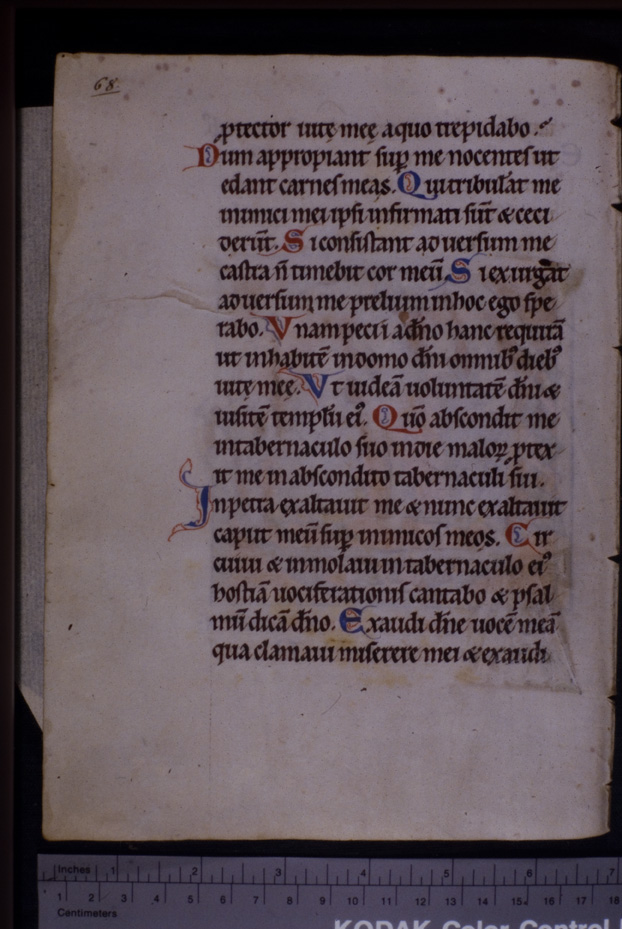 68.
ꝓtector uitę meę a quo trepidabo.
Dum appropiant sup̄ me nocentes ut
edant carnes meas. Qui tribulāt me
inimici mei ipsi infirmati sūt & ceci
derūt. Si consistant aduersum me
castra ñ timebit cor meū. Si exurgat
aduersum me prelium in hoc ego spe
rabo. Vnam pecii a dño hanc requirā
ut inhabitē in domo dñi omnibꝰ diebꝰ
uitę meę. Vt uideā uoluntatē dñi &
uisitē templū eiꝰ. Quō abscondit me
in tabernaculo suo in die maloꝝ ꝓtex
it me in abscondito tabernaculi sui.
In petra exaltauit me & nunc exaltauit
caput meū sup̄ inimicos meos. Cir
cuiui & immolaui in tabernaculo eiꝰ
hostiā uociferationis cantabo & psal
mū dicā dño. Exaudi dñe uocē meā
qua clamaui miserere mei & exaudi
Inches 1 2 3 4 5 6 7
1 2 3 4 5 6 7 8 9 10 11 12 13 14 15 16 17 18
Centimeters
KODAK Color Control